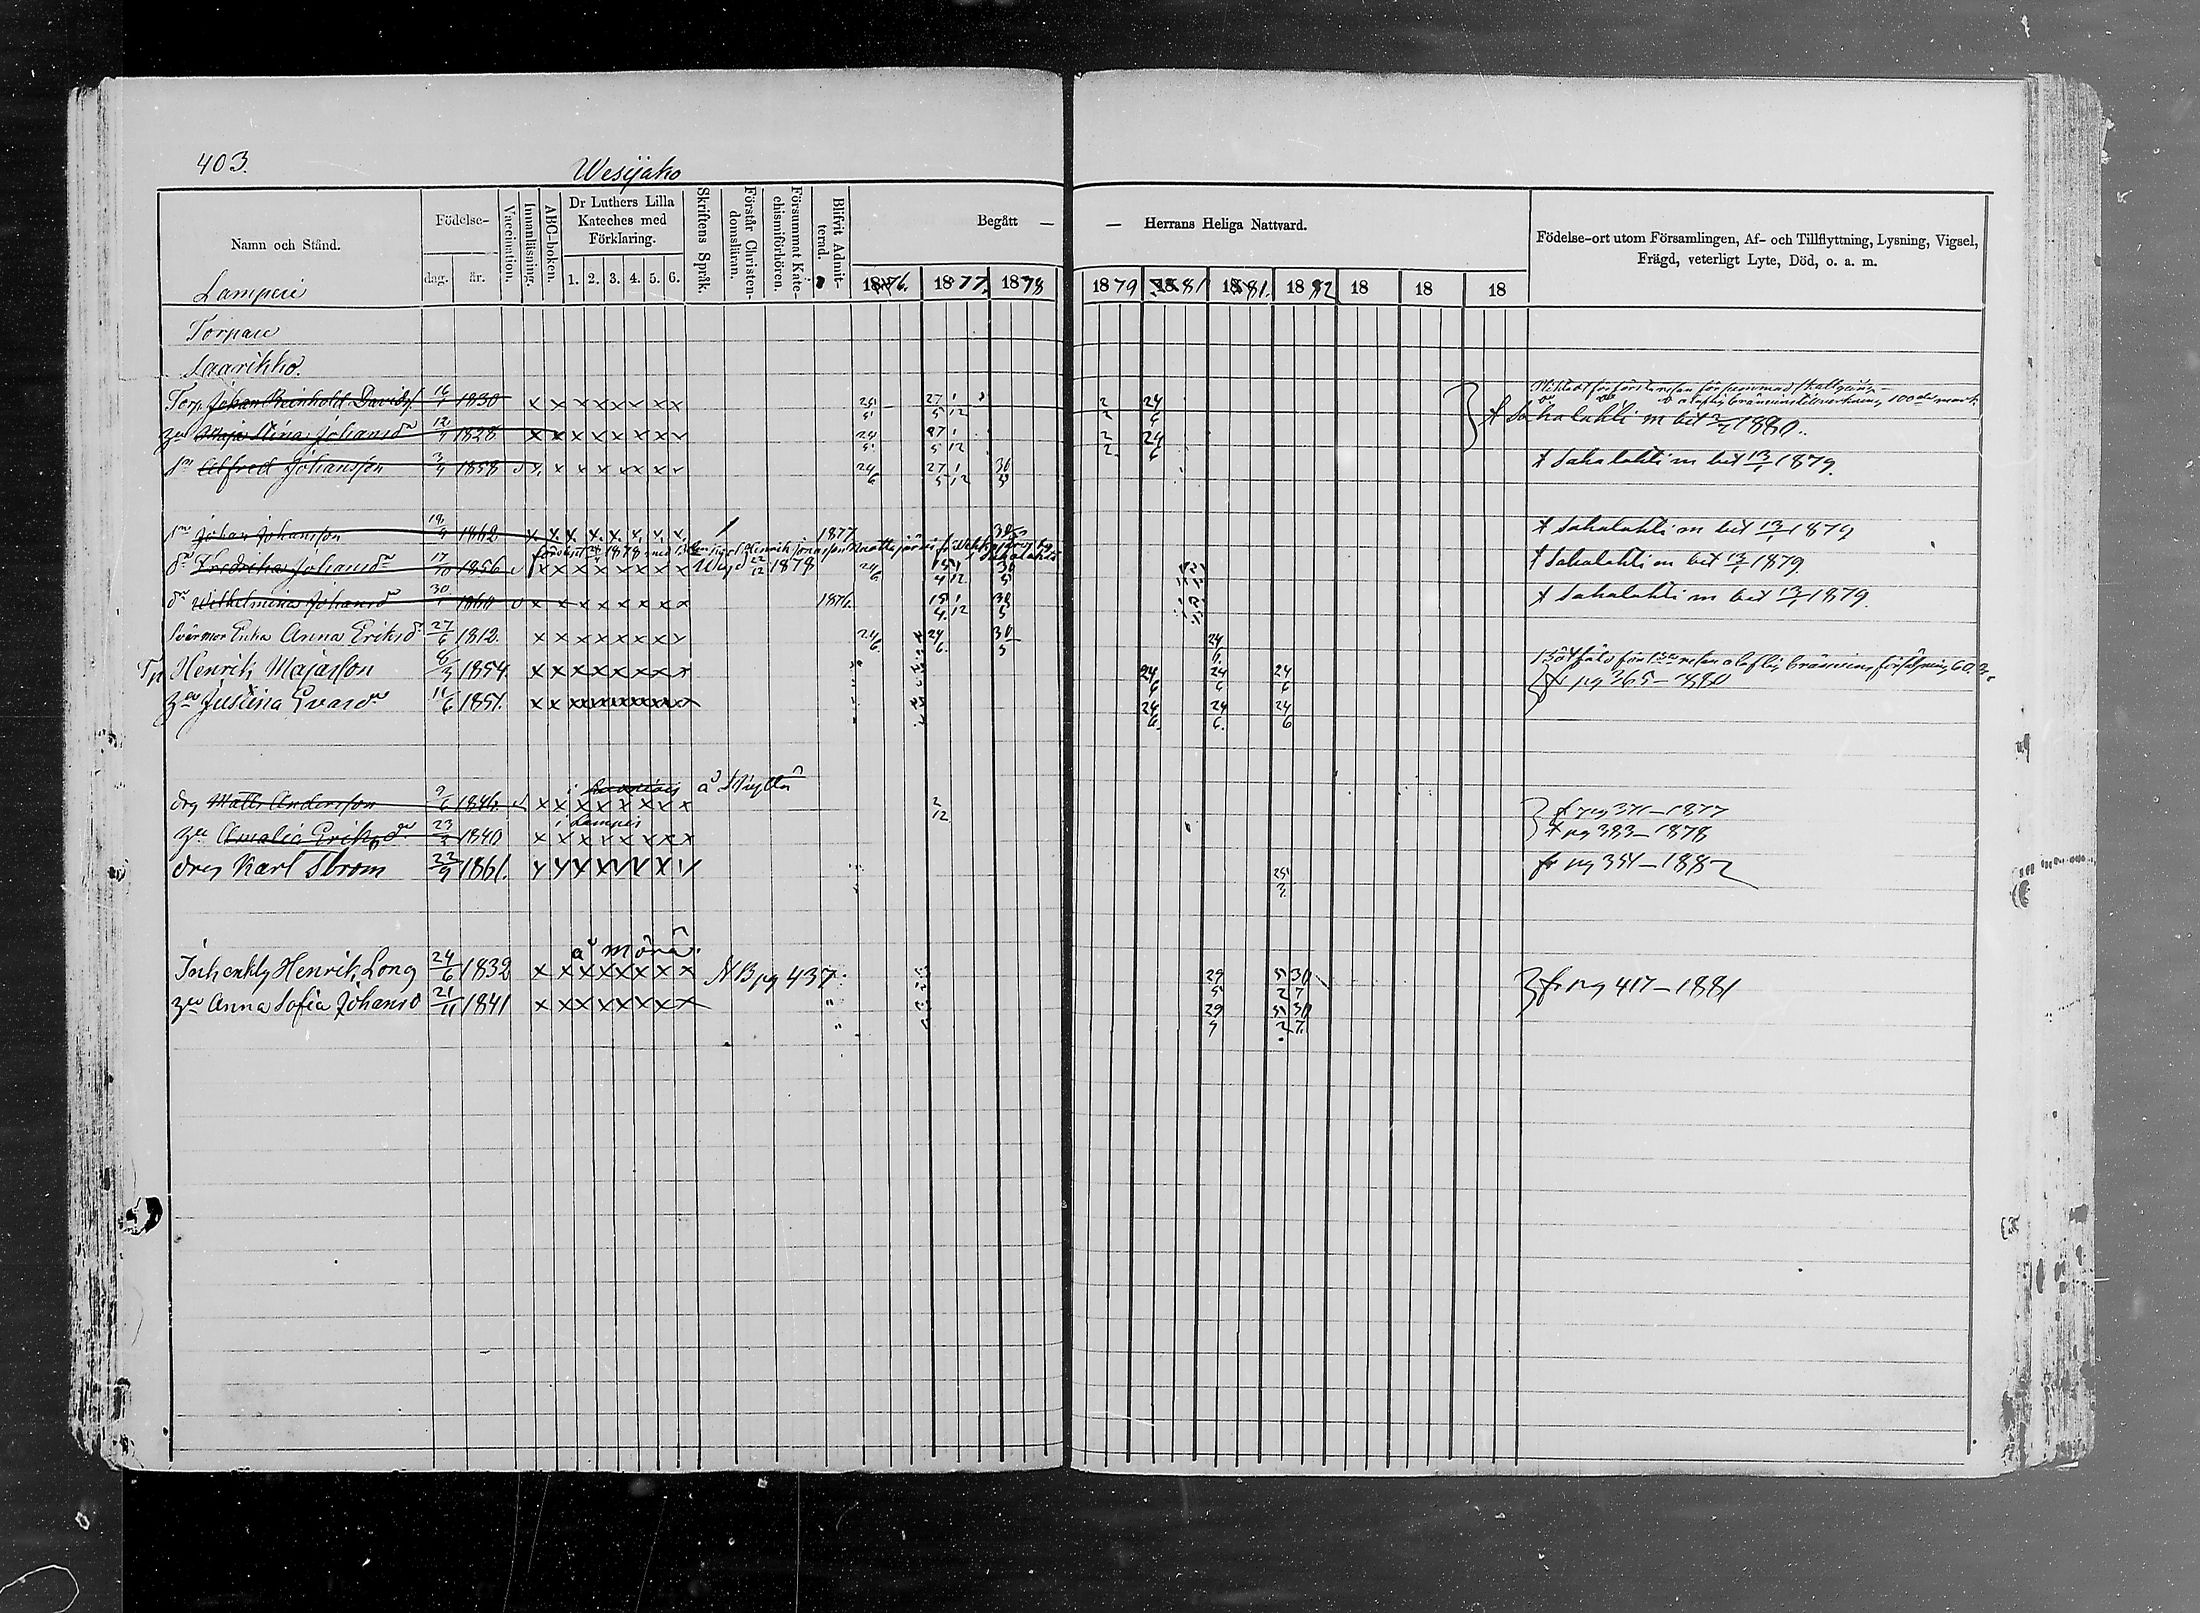 403.
Wesijako
Namn och Stånd.
Födelse-
dag.
år.
Vaccination.
Innanläsning.
ABC-boken.
Dr Luthers Lilla
Kateches med
Förklaring.
1. 2. 3. 4. 5. 6.
Skriftens Språk.
Förstår Christen-
domsläran.
Försummat Kate-
chismiförhören.
Blifvit Admit-
terad.
Begått — — Herrans Heliga Nattvard.
1876. 1877. 1878 1879 1881 1881. 1882 18 18 18
Födelse-ort utom Församlingen, Af- och Tillflyttning, Lysning, Vigsel,
Frägd, veterligt Lyte, Död, o. a. m.
Lampesi
Torpare
Laarikko.
Torp. Johan Reinhold Davids. 16/ 1830 x x x x x x x x 25/5 27/5 1/12 2/2 24/6
Zn Maja Stina Johansdr 12/ 1828 x x x x x x x x 24/5 27/5 1/12 2/2 24/6 Sahalahti m bet 1880.
Sn Alfred Johansson 3/ 1858 x x x x x x x x 24/6 27/5 1/12 30/5 Sahalahti m bet 13/1 1879.
Sn Johan Johansson 19/ 1862 x x x x x x x x 1877 30/5 Sahalahti m bet 13/1 1879
dr Fredrika Johansdr 17/10 1856 x x x x x x x x Wigd 22/12 1878 24/6 15/4 1/12 30/5 Sahalahti m bet 13/1 1879
dr Wilhelmina Johansdr 30/ 1860 x x x x x x x x 1876. 15/4 1/12 30/5 Sahalahti m bet 13/1 1879
Svärmor Enka Anna Eriksdr 27/6 1812. x x x x x x x x 24/6 24/6 30/5 24/6
Henrik Majasson 8/3 1854. x x x x x x x x 24/6 24/6 24/6 fr pg 365 — 1880
Justina Evardr 11/6 1851. x x x x x x x x 24/6 24/6 24/6
å Skyttä
drg Matts Andersson 9/6 1846. x x x x x x x x 2/12 fr pg 371 — 1877
i Lampesi
Zn Amalia Eriksdr 23/2 1840 x x x x x x x x pg 383 — 1878
drg Karl Strom 22/9 1861. x x x x x x x x 25/3 fr pg 351 — 1882
å Mörä.
Inhenklg Henrik Long 24/6 1832 x x x x x x x x NB pg 437 29/5 5/2 30/7 fr pg 417 — 1881
Zn Anna Sofia Johansd 21/11 1841 x x x x x x x x 29/5 5/2 30/7